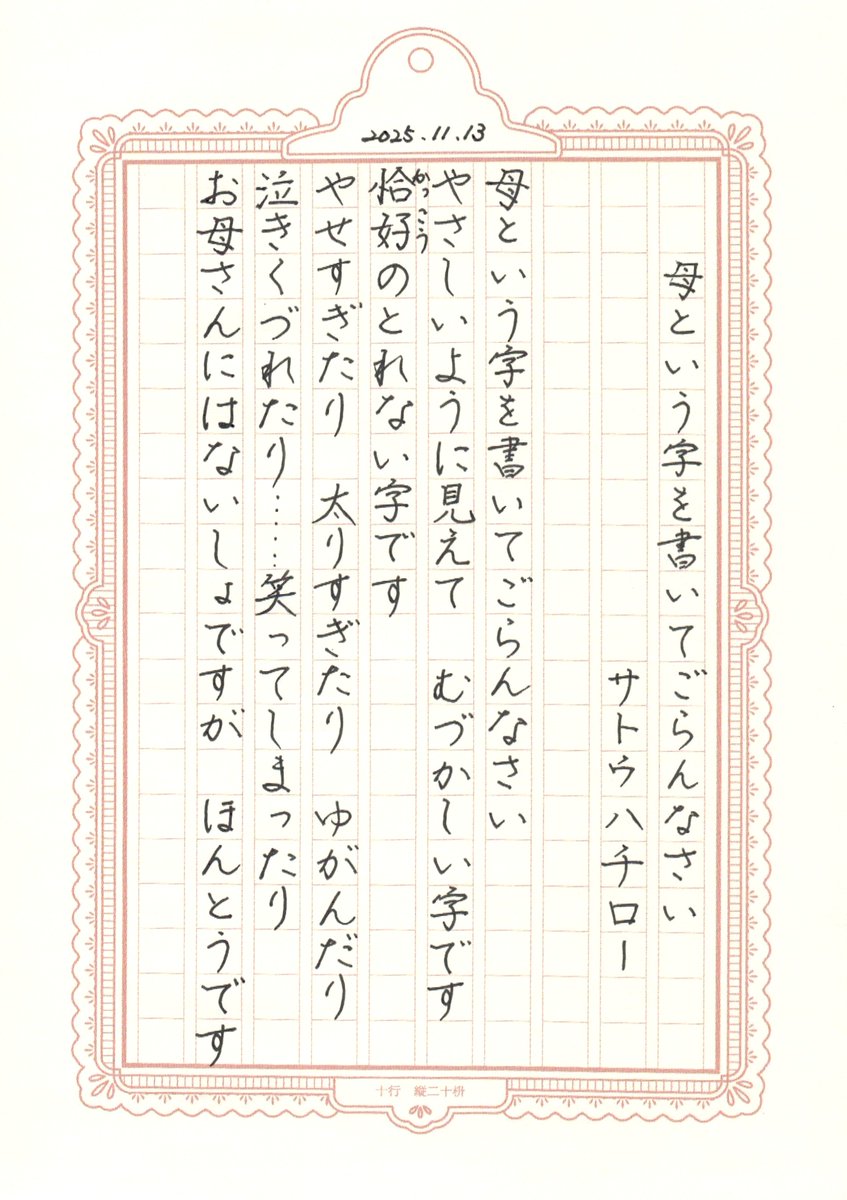 2025.11.13
母という字を書いてごらんなさい
サトウハチロー
母という字を書いてごらんなさい
やさしいように見えて　むづかしい字です
かっこう
恰好のとれない字です
やせすぎたり　太りすぎたり　ゆがんだり
泣きくづれたり……笑ってしまったり
お母さんにはないしょですが　ほんとうです
十行　縦二十枡